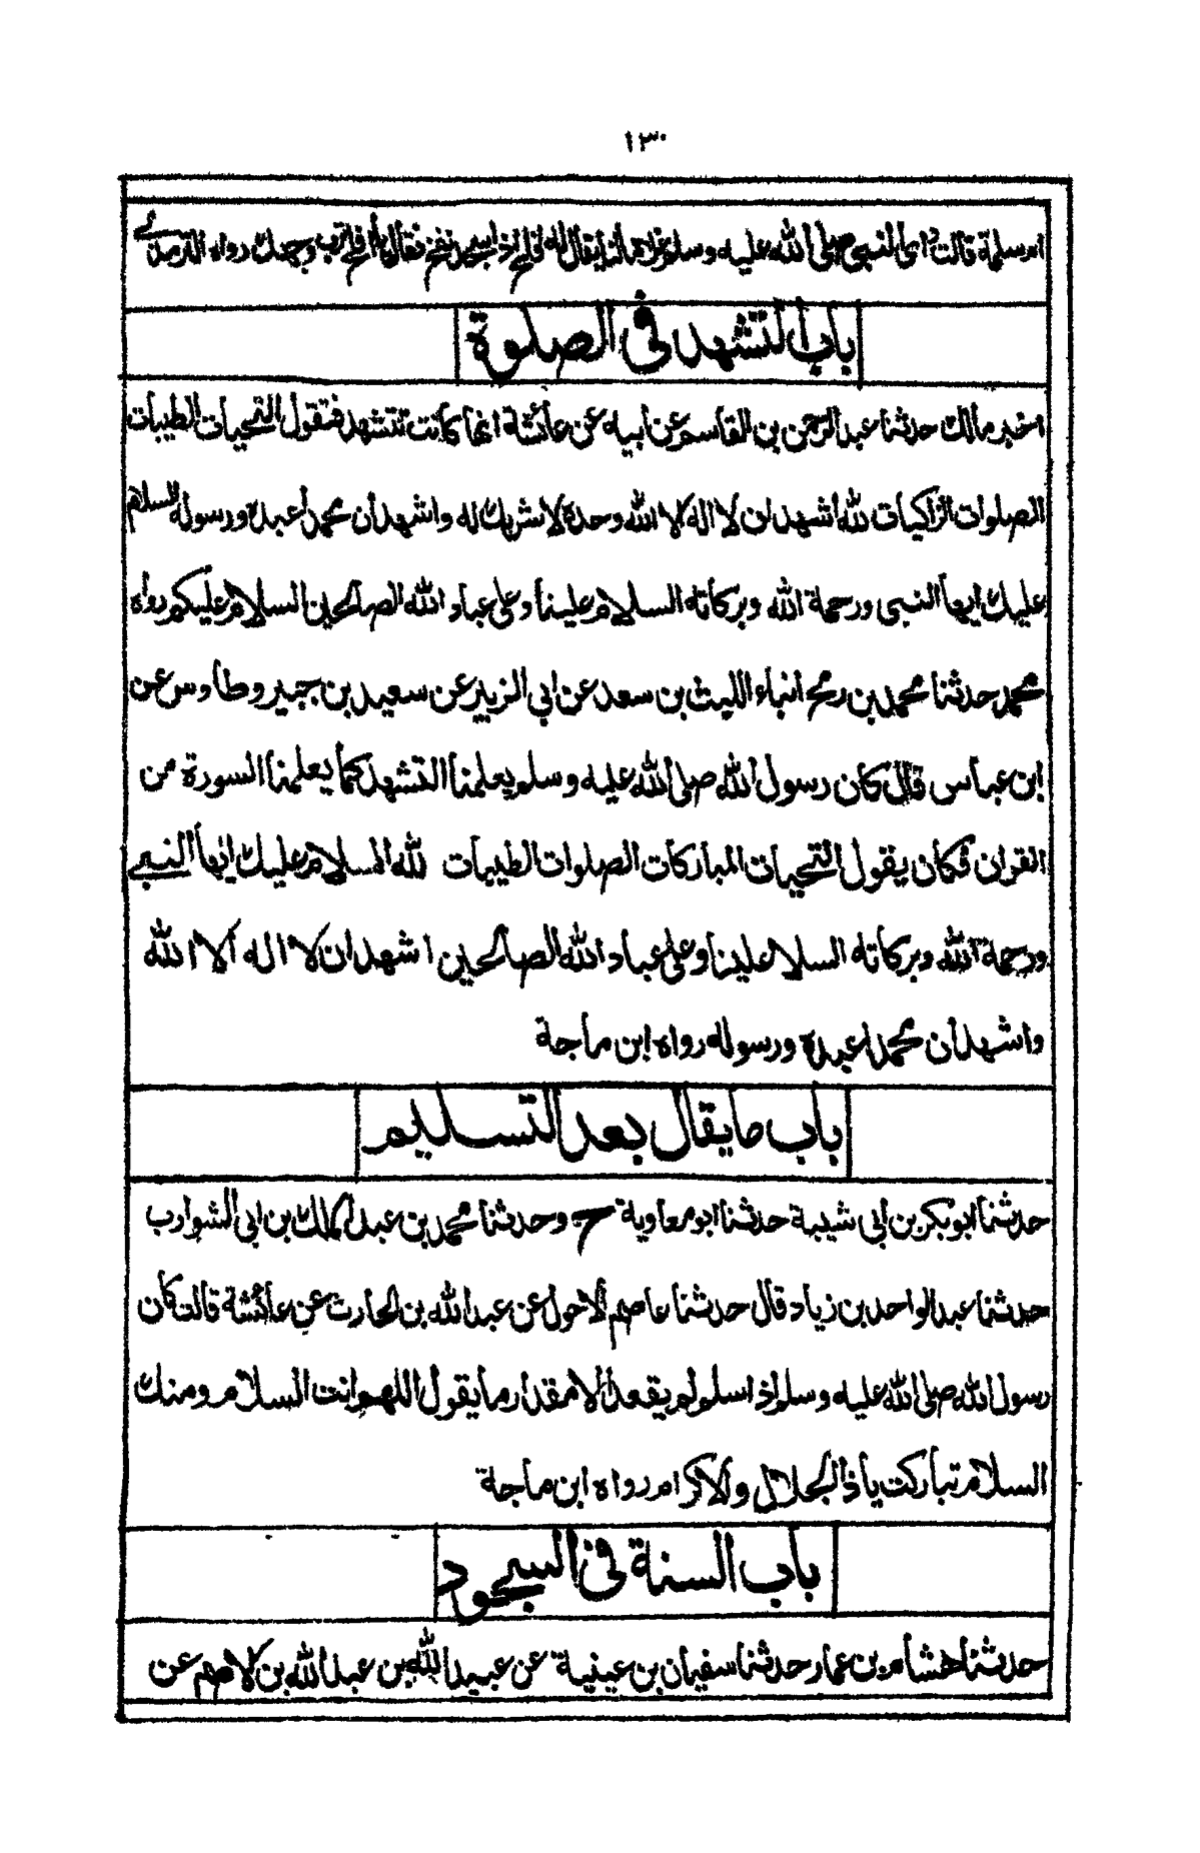 ١٣٠
ام سلمة قالت رأى النبي صلى الله عليه وسلم غلاما لنا يقال له افلح اذا سجد نفخ فقال يا افلح ترب وجهك رواه الترمذي
باب التشهد في الصلوة
اخبر مالك حدثنا عبد الرحمن بن القاسم عن أبيه عن عائشة انها كانت تتشهد فتقول التحيات الطيبات
الصلوات الزاكيات لله أشهد ان لا اله الا الله وحده لا شريك له واشهد أن محمدا عبده ورسوله السلام
عليك ايها النبي ورحمة الله وبركاته السلام علينا وعلى عباد الله الصالحين السلام عليكم رواه
محمد حدثنا محمد بن رمح انباء الليث بن سعد عن ابي الزبير عن سعيد بن جبير وطاوس عن
ابن عباس قال كان رسول الله صلى الله عليه وسلم يعلمنا التشهد كما يعلمنا السورة من
القران فكان يقول التحيات المباركات الصلوات الطيبات لله السلام عليك ايها النبي
ورحمة الله وبركاته السلا علينا وعلى عباد الله الصالحين اشهد ان لا اله الا الله
واشهد أن محمدا عبده ورسوله رواه ابن ماجة
باب ما يقال بعد التسليم
حدثنا ابو بكر بن ابي شيبة حدثنا ابو معاوية ح وحدثنا محمد بن عبد الملك بن ابي الشوارب
حدثنا عبد الواحد بن زياد قال حدثنا عاصم الاحول عن عبد الله بن الحارث عن عائشة قالت كان
رسول الله صلى الله عليه وسلم اذا سلم لم يقعد الا مقدار ما يقول اللهم انت السلام ومنك
السلام تباركت يا ذا الجلال والاكرام رواه ابن ماجة
باب السنة في السجود
حدثنا هشام بن عمار حدثنا سفيان بن عينية عن عبيد الله بن عبد الله بن الاصم عن